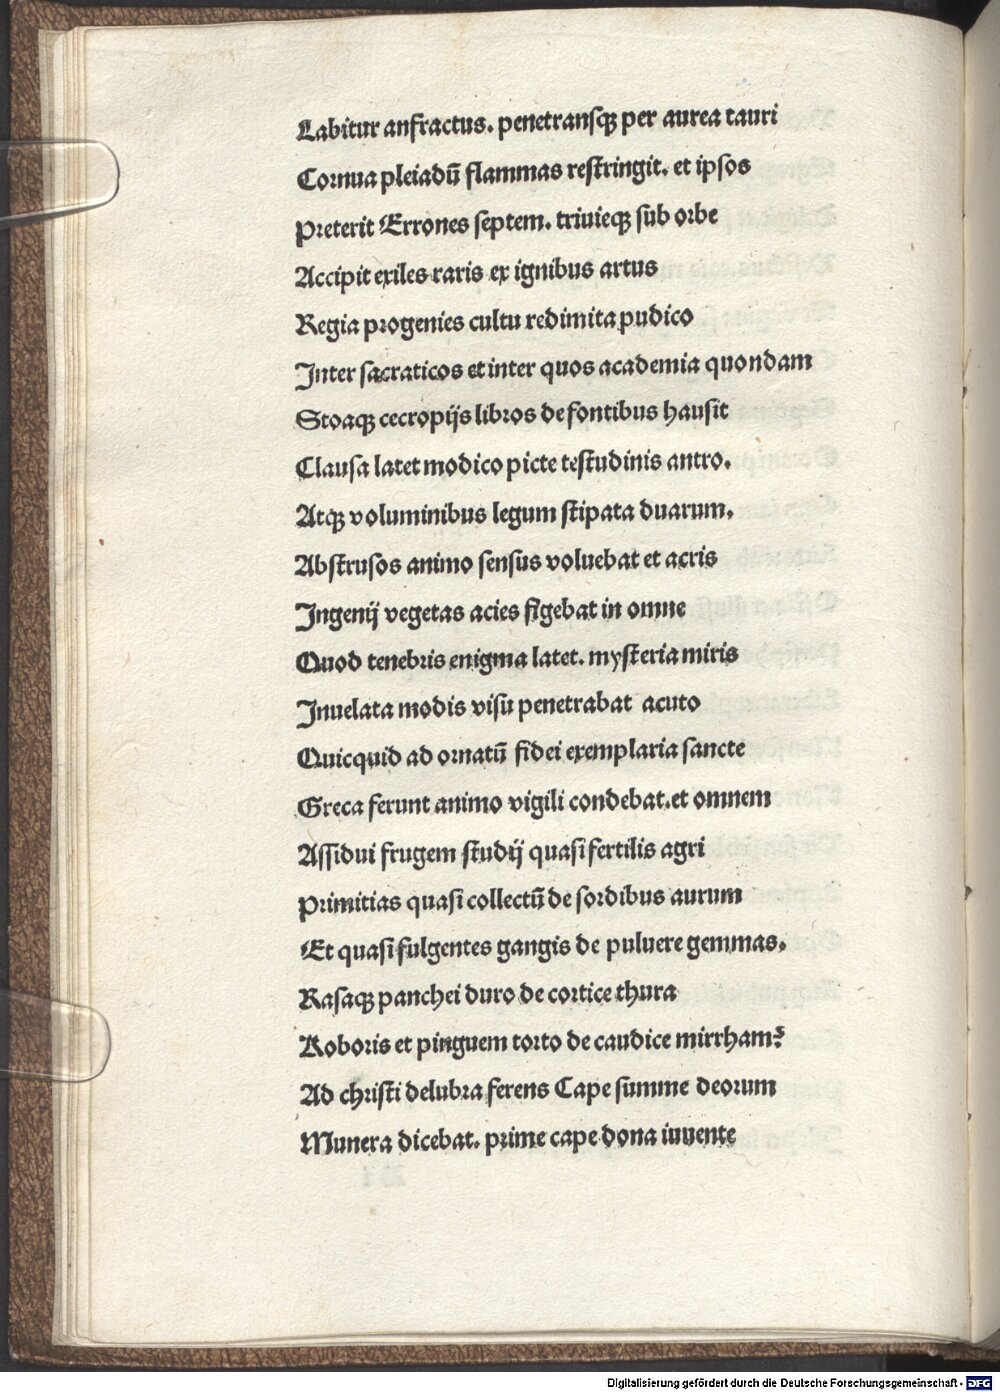 Labitur anfractus. penetransqꝫ per aurea tauri
Cornua pleiadū flammas restringit. et ipsos
Preterit Errones septem. triuieqꝫ sub orbe
Accipit exiles raris ex ignibus artus
Regia progenies cultu redimita pudico
Inter sacraticos et inter quos academia quondam
Stoaqꝫ cecropijs libros de fontibus hausit
Clausa latet modico picte testudinis antro.
Atqꝫ voluminibus legum stipata duarum.
Abstrusos animo sensus voluebat et acris
Ingenij vegetas acies figebat in omne
Quod tenebris enigma latet. mysteria miris
Inuelata modis visu penetrabat acuto
Quicquid ad ornatū fidei exemplaria sancte
Greca ferunt animo vigili condebat. et omnem
Assidui frugem studij quasi fertilis agri
Primitias quasi collectū de sordibus aurum
Et quasi fulgentes gangis de puluere gemmas.
Rasaqꝫ panchei duro de cortice thura
Roboris et pinguem torto de caudice mirrham?
Ad christi delubra ferens Cape summe deorum
Munera dicebat. prime cape dona iuuente
Digitalisierung gefördert durch die Deutsche Forschungsgemeinschaft - DFG